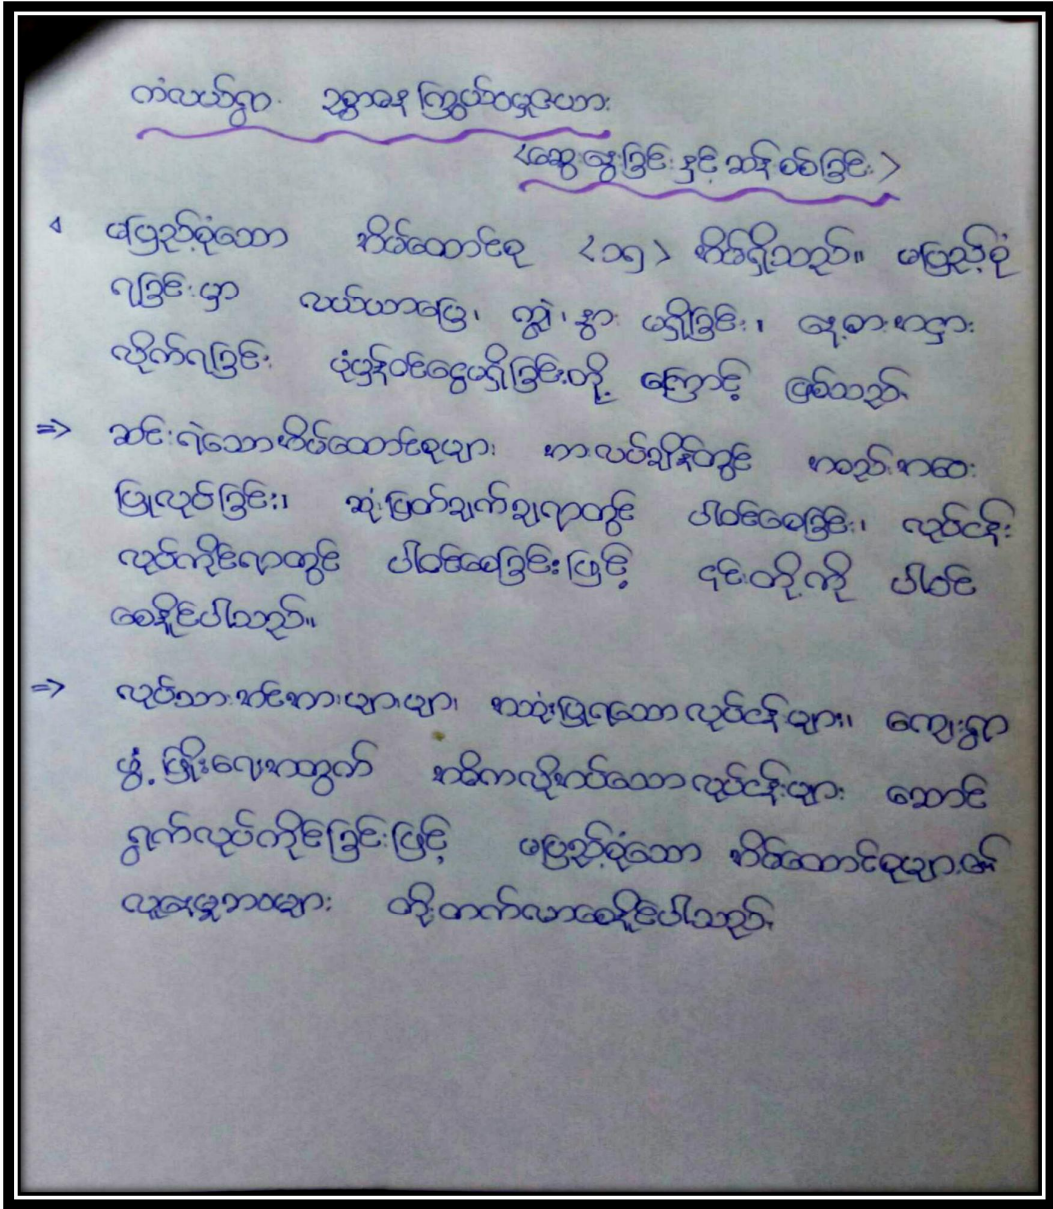 ကံလယ်ရွာ ဥစ္စာဓန ကြွယ်ဝမှုဇယား
<ဆွေးနွေးခြင်းနှင့် ဆန်းစစ်ခြင်း>
မပြည့်စုံသော အိမ်ထောင်စု <၁၅> အိမ်ရှိသည်။ မပြည့်စုံ
ရခြင်းမှာ လယ်ယာမြေ၊ ကျွဲ၊ နွား မရှိခြင်း၊ နေ့စားအငှား
လိုက်ရခြင်း ပုံမှန်ဝင်ငွေမရှိခြင်းတို့ ကြောင့် ဖြစ်သည်
⇒ ဆင်းရဲသောအိမ်ထောင်စုများ အားလပ်ချိန်တွင် အစည်းအဝေး
ပြုလုပ်ခြင်း၊ ဆုံးဖြတ်ချက်ချရာတွင် ပါဝင်စေခြင်း၊ လုပ်ငန်း
လုပ်ကိုင်ရာတွင် ပါဝင်စေခြင်းဖြင့် ၎င်းတို့ကို ပါဝင်
စေနိုင်ပါသည်။
⇒ လုပ်သားအင်အားများများ အသုံးပြုရသောလုပ်ငန်းများ၊ ကျေးရွာ
ဖွံ့ဖြိုးရေးအတွက် အဓိကလိုအပ်သောလုပ်ငန်းများ ဆောင်
ရွက်လုပ်ကိုင်ခြင်းဖြင့် မပြည့်စုံသော အိမ်ထောင်စုများ၏
လူနေမှုဘဝများ တိုးတက်လာစေနိုင်ပါသည်